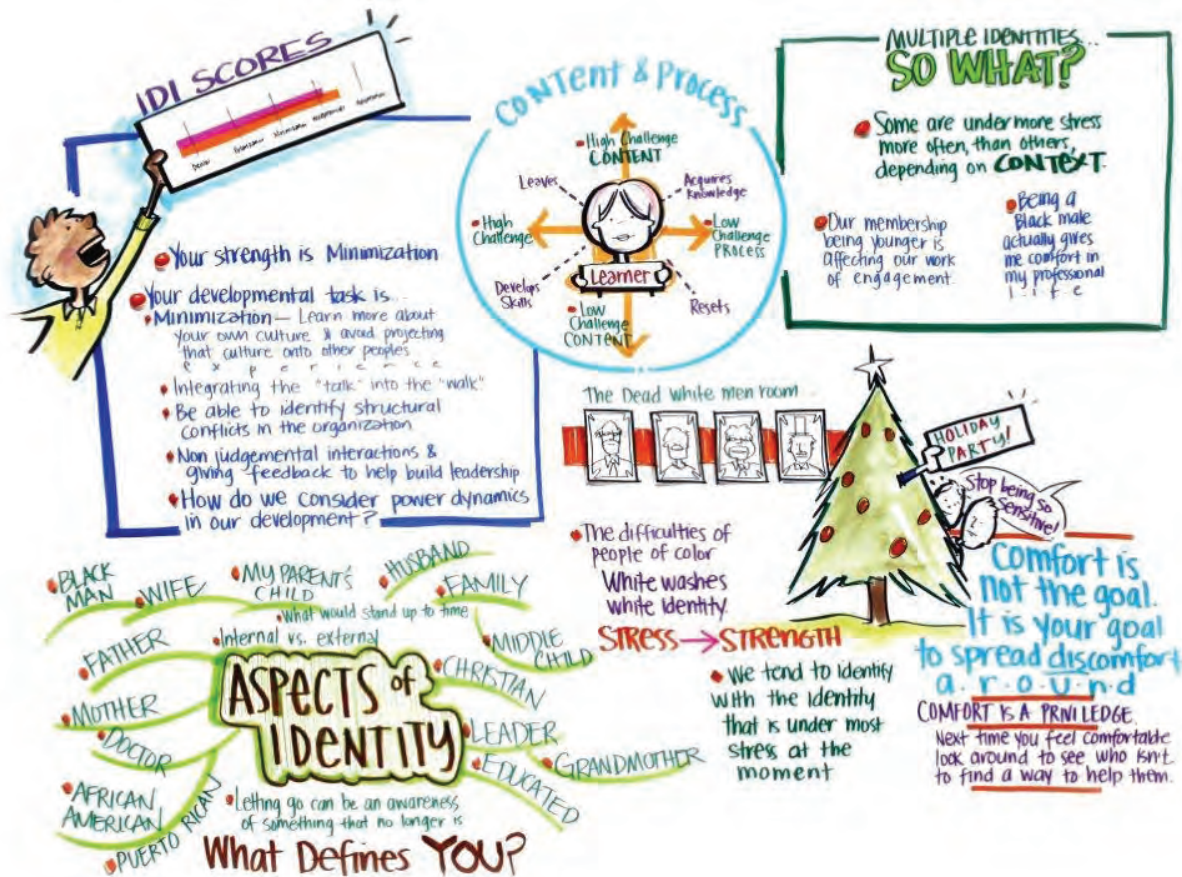 IDI SCORES
Denial
Polarization
Minimization
Acceptance
Adaptation
Your strength is Minimization
Your developmental task is...
Minimization — Learn more about
your own culture & avoid projecting
that culture onto other peoples
experience
Integrating the "talk" into the "walk"
Be able to identify structural
conflicts in the organization
Non judgemental interactions &
giving feedback to help build leadership
How do we consider power dynamics
in our development?
CONTENT & PROCESS
High Challenge
CONTENT
Leaves
Acquires
Knowledge
High
Challenge
Low
Challenge
PROCESS
Learner
Develops
Skills
Resets
Low
Challenge
CONTENT
MULTIPLE IDENTITIES...
SO WHAT?
Some are under more stress
more often, than others,
depending on CONTEXT.
Our membership
being younger is
affecting our work
of engagement.
Being a
Black male
actually gives
me comfort in
my professional
life
The Dead white men room...
HOLIDAY
PARTY!
Stop being so
sensitive!
The difficulties of
people of color
White washes
white identity.
STRESS → STRENGTH
We tend to identify
with the identity
that is under most
stress at the
moment
Comfort is
not the goal.
It is your goal
to spread discomfort
a.r.o.u.n.d
COMFORT IS A PRIVILEDGE.
Next time you feel comfortable
look around to see who isn't
to find a way to help them.
BLACK
MAN
WIFE
MY PARENT'S
CHILD
HUSBAND
FAMILY
What would stand up to time
Internal vs. external
FATHER
MIDDLE
CHILD
CHRISTIAN
ASPECTS of
IDENTITY
MOTHER
DOCTOR
LEADER
EDUCATED
GRANDMOTHER
AFRICAN
AMERICAN
PUERTO RICAN
Letting go can be an awareness
of something that no longer is
What Defines YOU?